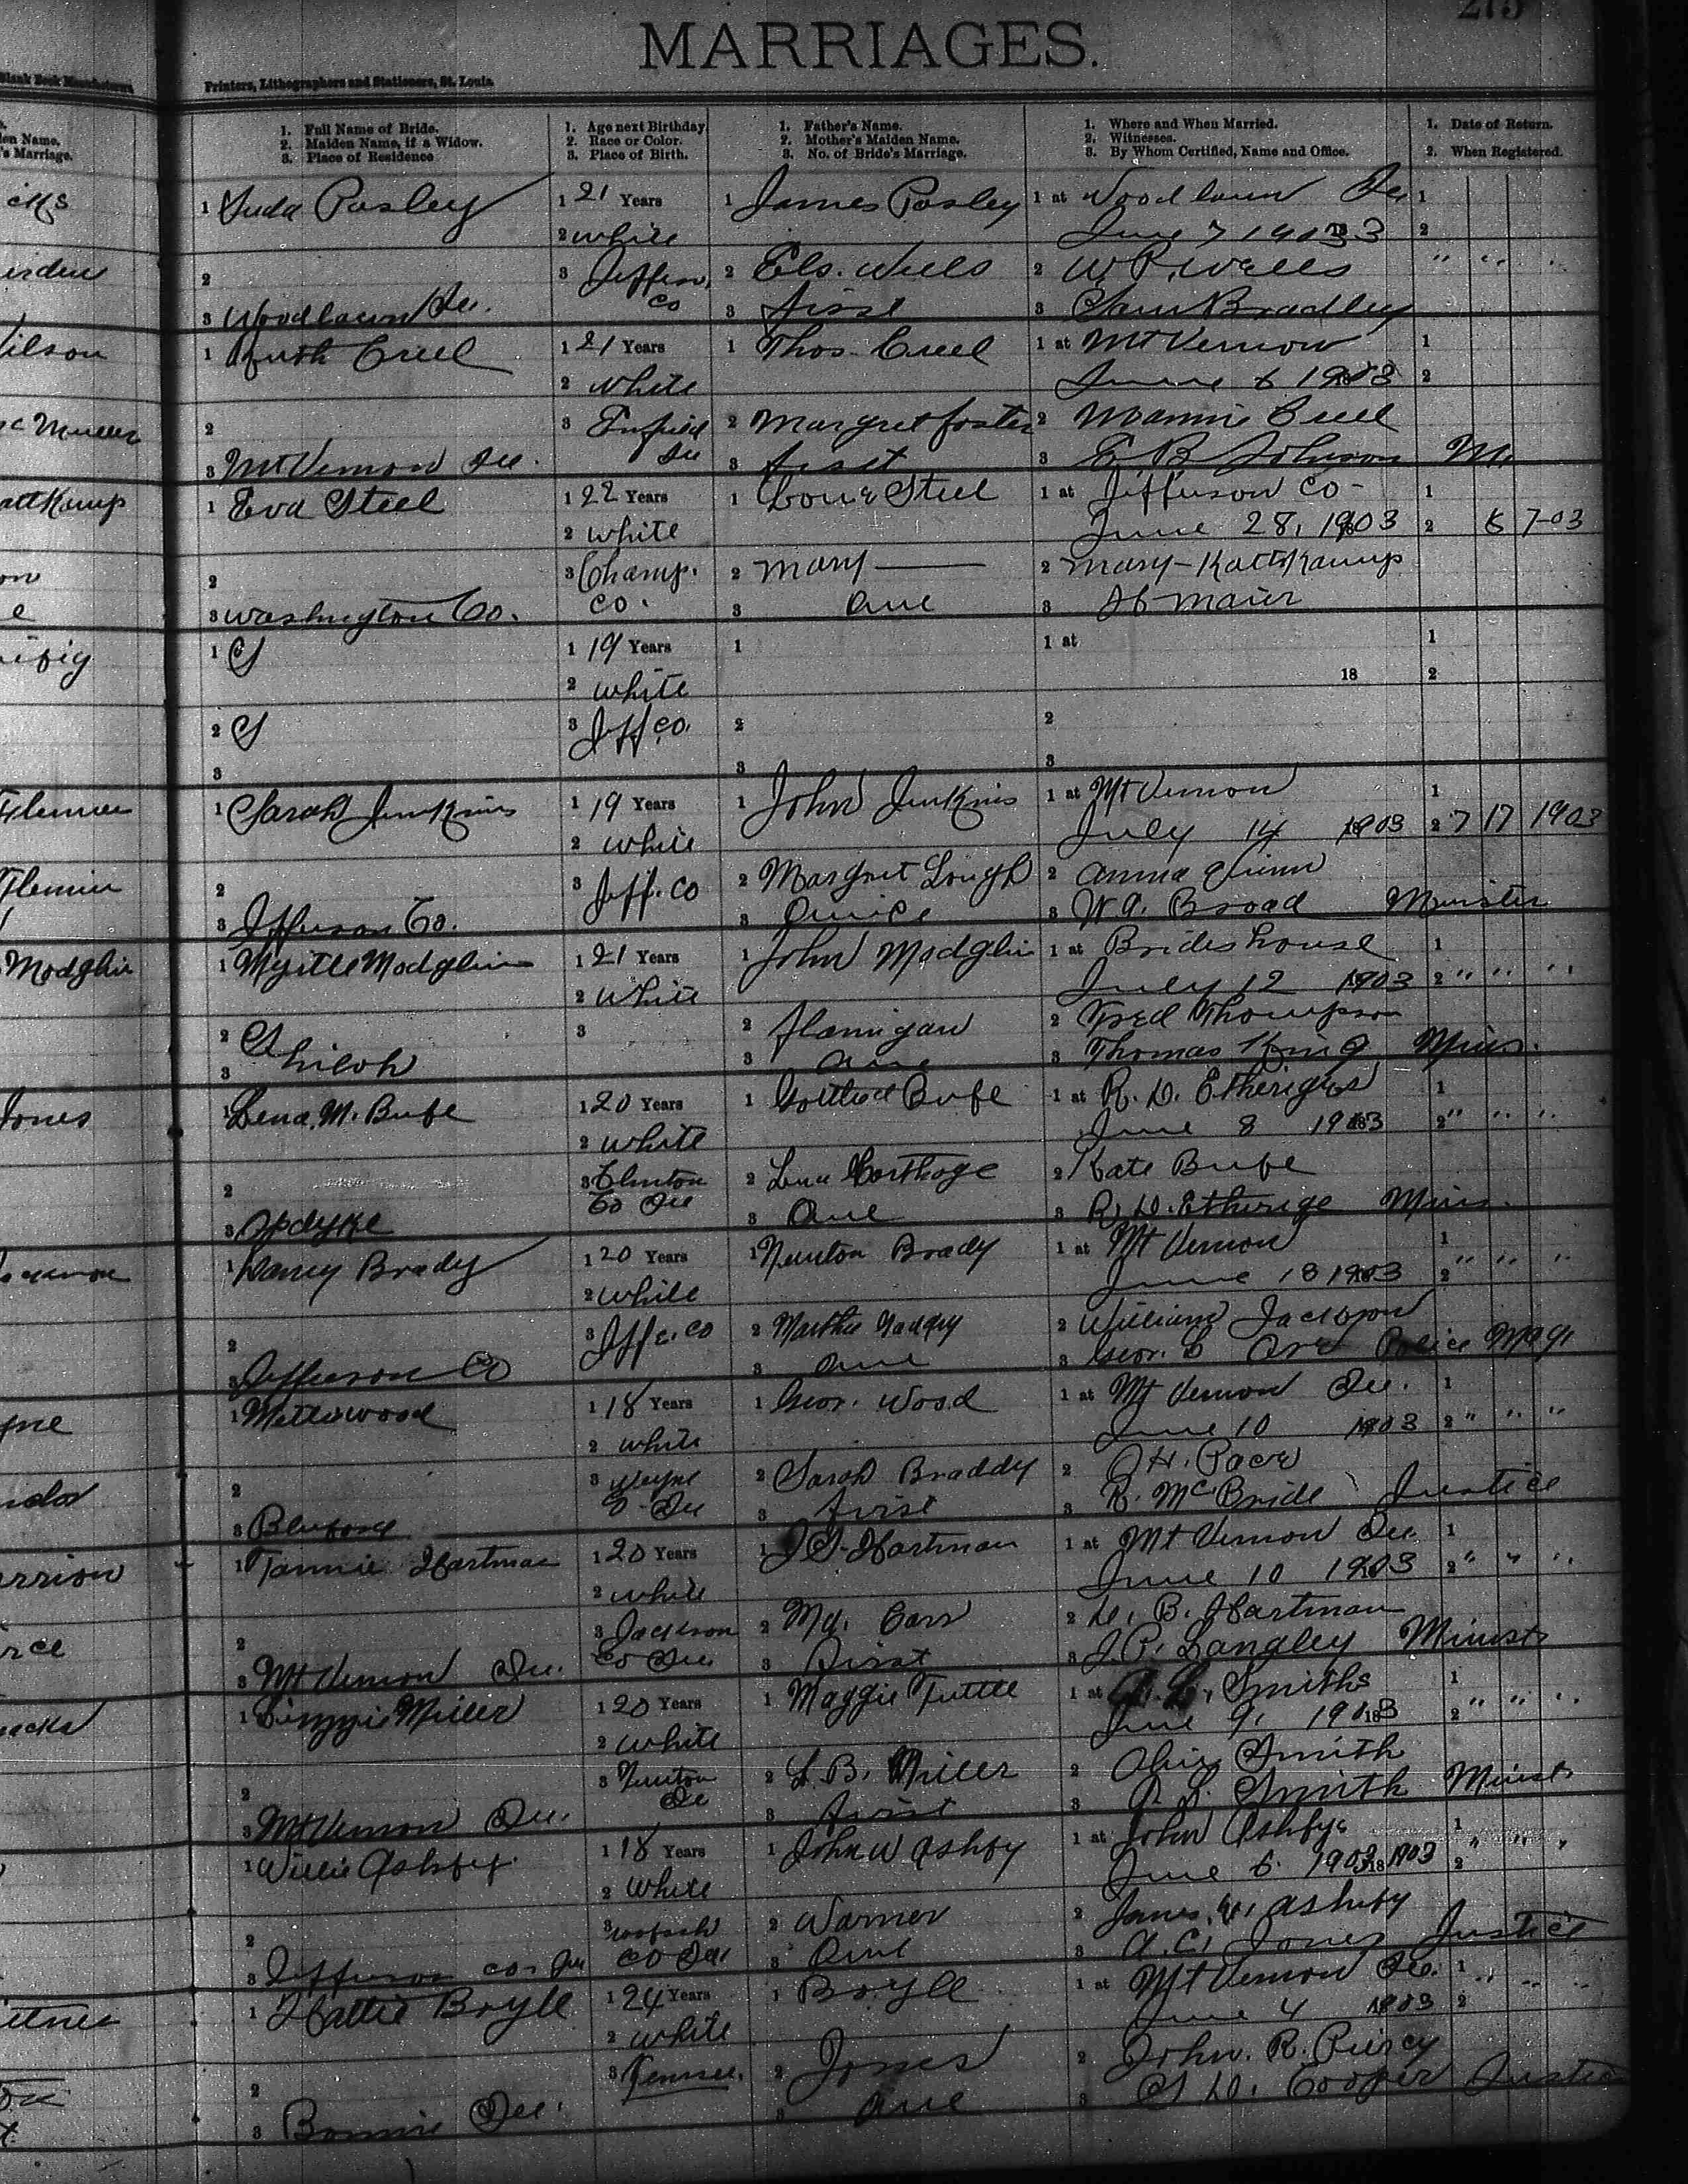 275
MARRIAGES.
Blank Book Manufacturers,
Printers, Lithographers and Stationers, St. Louis.
en Name.
's Marriage.
1. Full Name of Bride.
2. Maiden Name, if a Widow.
3. Place of Residence
1. Age next Birthday
2. Race or Color.
3. Place of Birth.
1. Father's Name.
2. Mother's Maiden Name.
3. No. of Bride's Marriage.
1. Where and When Married.
2. Witnesses.
3. By Whom Certified, Name and Office.
1. Date of Return.
2. When Registered.
1 Pasley 1 21 Years 1 James Pasley 1 at Woodlawn Ill 1
2 white June 7 1903 2
2 3 Jefferson 2 Els. Wells 2 W.P. Wells " " "
3 Woodlawn Ill. Co 3 first 3 Sam Bradley
ilson 1 Ruth Creel 1 21 Years 1 Thos. Creel 1 at Mt Vernon 1
2 white June 6 1903 2
2 3 Enfield 2 Margret Foster 2 Mannie Creel
3 Mt Vernon Ill. Ill 3 first 3 E.B. Johnson M
attKamp 1 Eva Steel 1 22 Years 1 Steel 1 at Jefferson Co - 1
2 white June 28, 1903 2 6 7-03
on 2 3 Champ. 2 Mary —— 2 Mary - KattKamp
e 3 Washington Co. Co. 3 One 3 Maier
ifig 1 S 1 19 Years 1 1 at 1
2 white 18 2
2 S 3 Jeff Co. 2 2
3 3 3
Flemin 1 Sarah Jenkins 1 19 Years 1 John Jenkins 1 at Mt Vernon 1
2 white July 14 1903 2 7 17 1903
Flemin 2 3 Jeff. Co 2 Margret Lough 2 Anna Quinn
3 Jefferson Co. 3 3 W.A. Broad Minister
Modglin 1 Myrtle Modglin 1 21 Years 1 John Modglin 1 at Brides house 1
2 White July 12 1903 2 " " "
2 3 2 Flanigan 2 Fred Thompson
3 Shiloh 3 One 3 Thomas King Minis.
Jones 1 Lena. M. Bufe 1 20 Years 1 Gottlied Bufe 1 at R. D. Etheriges 1
2 white June 8 1903 2 " " "
2 3 Clinton 2 Lena 2 Kate Bufe
3 Opdyke Co Ill 3 One 3 R. D. Etherige Minis.
1 Nancy Brady 1 20 Years 1 Newton Brady 1 at Mt Vernon 1
2 white June 18 1903 2 " " "
2 3 Jeffe. Co 2 Marthie 2 William Jackson
3 Jefferson Co 3 One 3 Geor. C Orr Police Mag.
yne 1 Metta Wood 1 18 Years 1 Geor. Wood 1 at Mt Vernon Ill. 1
2 white June 10 1903 2 " " "
2 3 Wayne 2 Sarah Braddy 2 J H. Pace
3 Bluford Co Ill 3 First 3 R. McBride Justice
rrison 1 Fannie Hartman 1 20 Years 1 J S. Hartman 1 at Mt Vernon Ill 1
2 white June 10 1903 2 " " "
rce 2 3 Jackson 2 My. Carr 2 D. B. Hartman
3 Mt Vernon Ill. Co Ill 3 First 3 J.P. Langley Minist
1 Lizzie Miller 1 20 Years 1 Maggie Tuttle 1 at Smiths 1
2 white June 9, 1903 2 " " "
2 3 Newton 2 L.B. Miller 2 Smith
3 Mt Vernon Ill. Ill 3 First 3 Smith Minist
1 Willie Ashby. 1 18 Years 1 John W Ashby 1 at John Ashbys 1
2 White June 6. 1903 1903 2 " " "
2 3 Wabash 2 Warner 2 James. W. Ashby
3 Jefferson Co. Ill Co Ill 3 One 3 A. C. Jones Justice
1 Hattie Boyle 1 24 Years 1 Boyle 1 at Mt Vernon Ill. 1 " " "
2 White June 4 1903 2
2 3 Tennsee. 2 Jones 2 John. R. Piercy
3 Bonnie Ill. 3 One 3 S. D. Cooper Justice